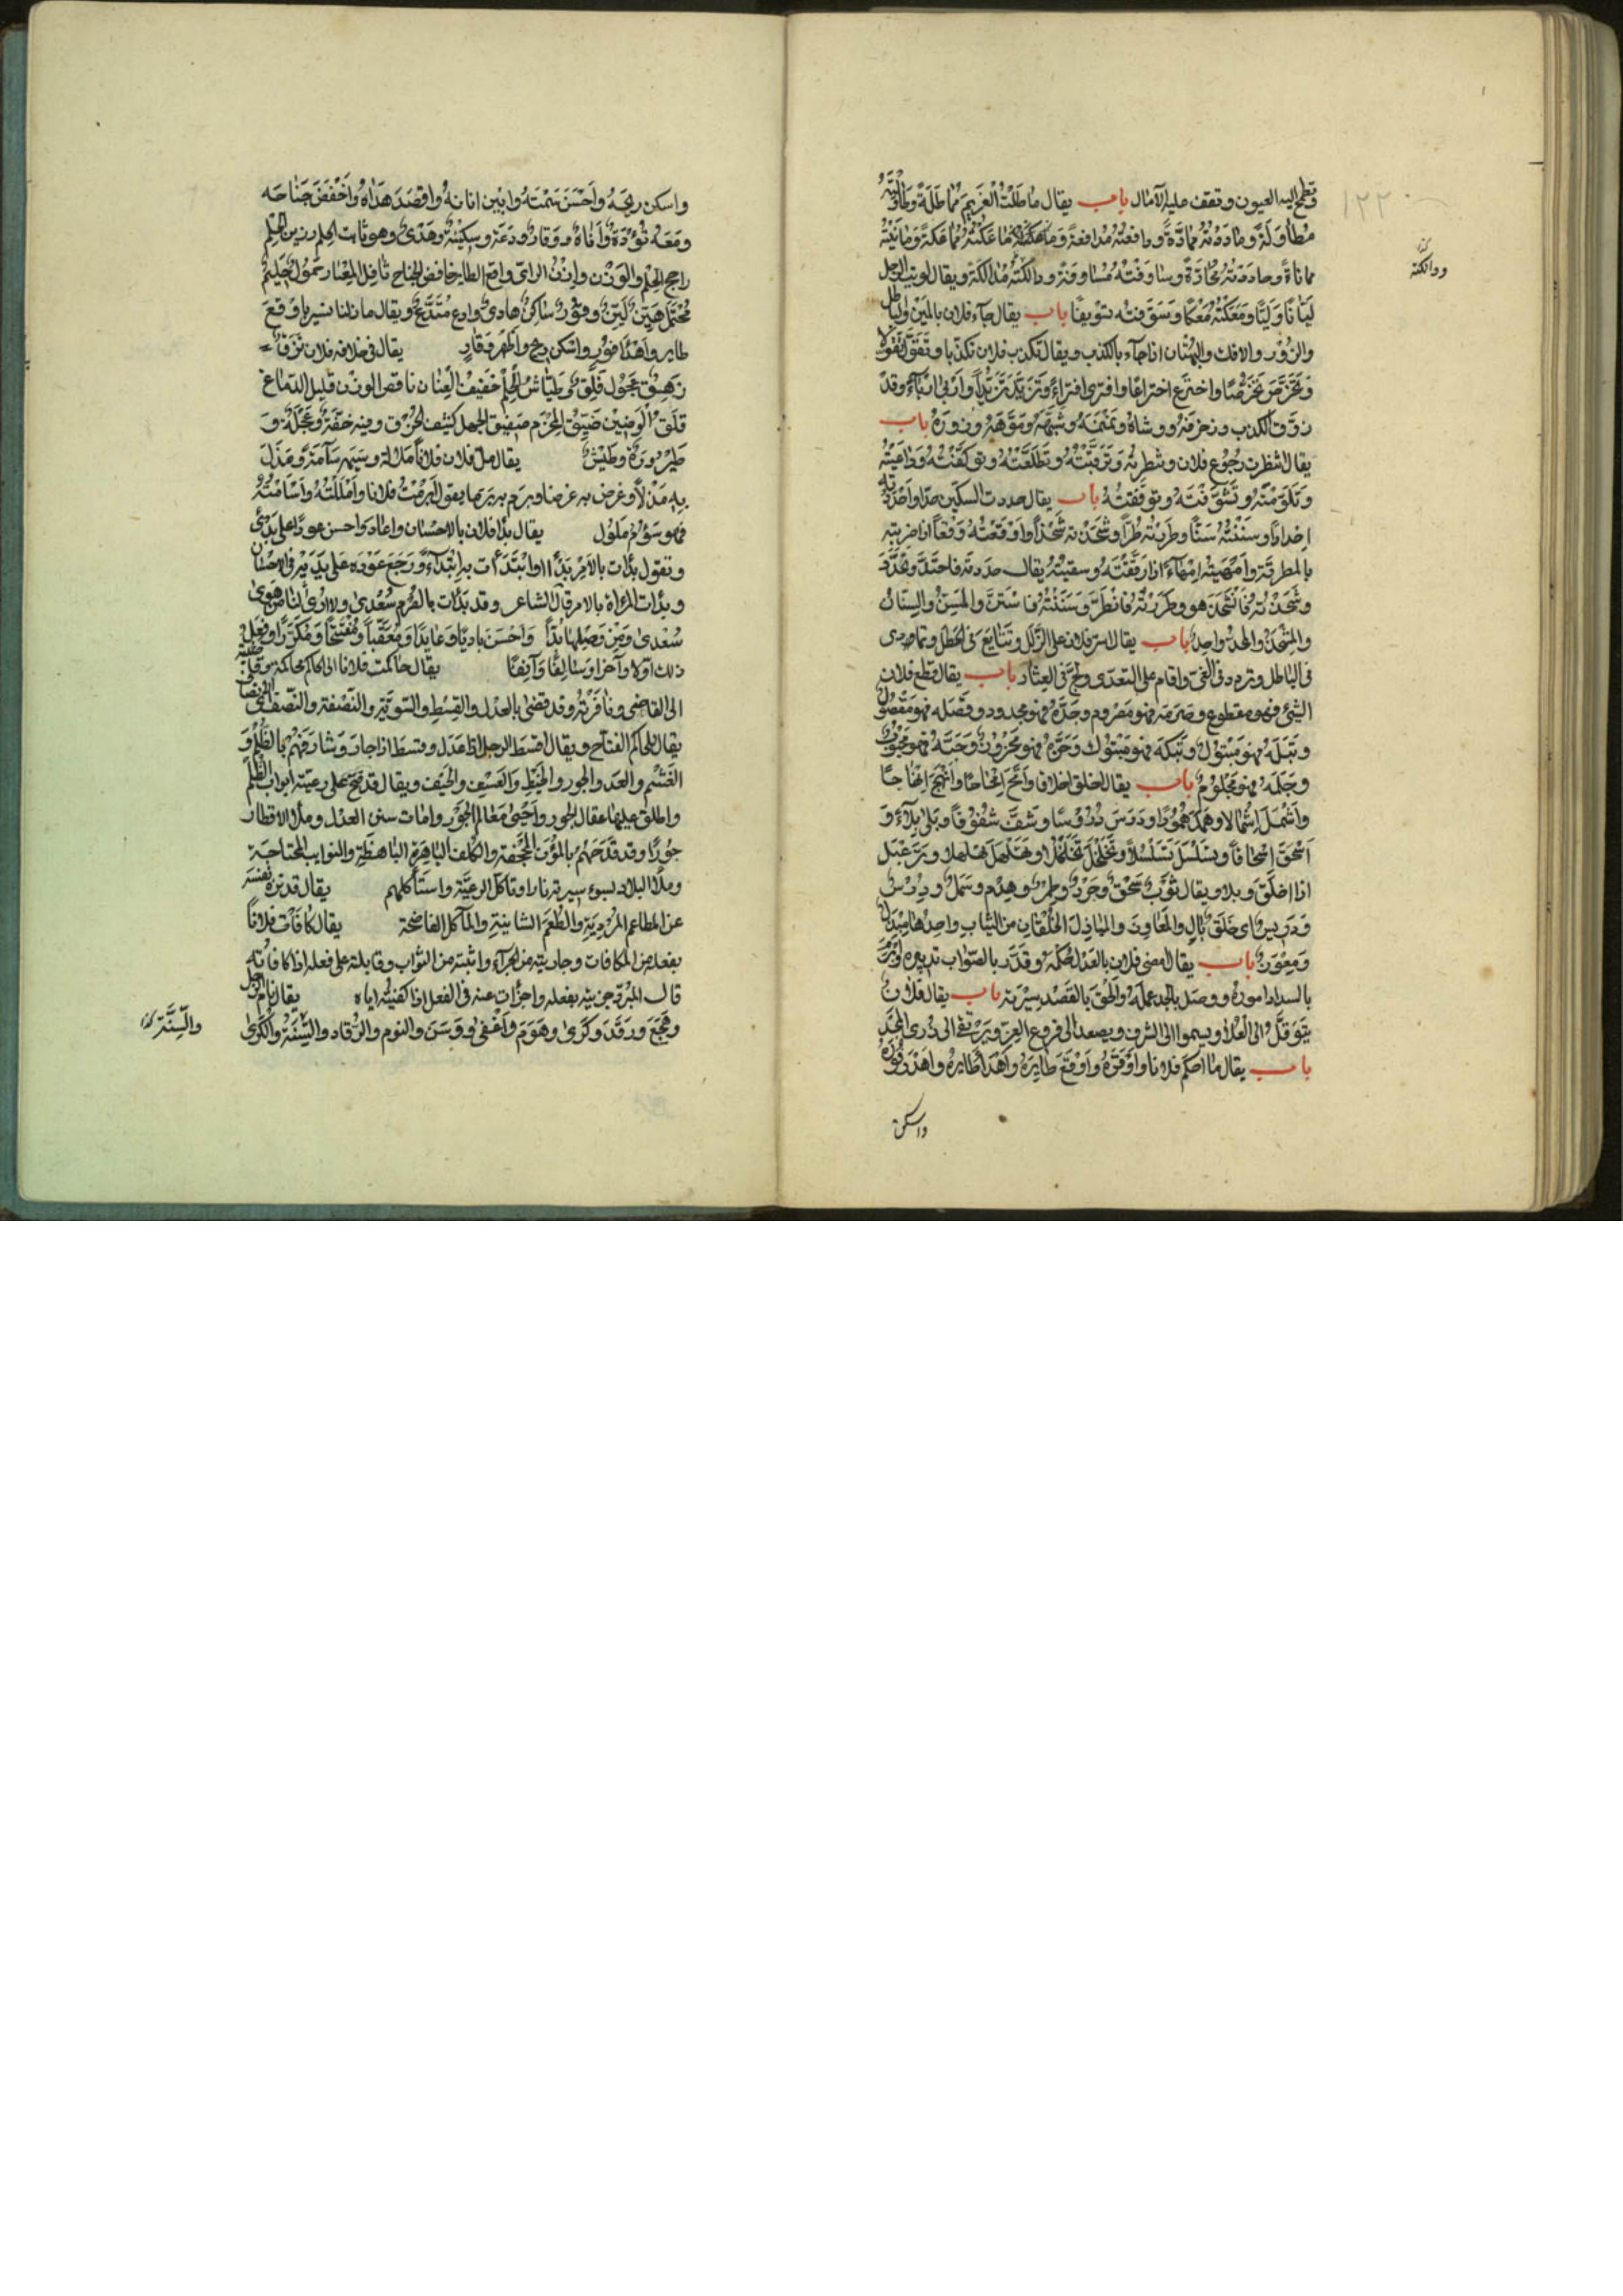 وتطمح اليه العيون وتقف عليه الآمال باب يقال ماطلت الغريم مماطلة وطاولته
مطاولة وماددته ممادّة ودافعته مدافعة وماعكته مماعكة ومانيته
مماناة وحاددته محادّة وساوفته مساوفة ودالكته مدالكة ويقال لويت الرجل
ليّانا وليّا ومعكته معكا وسوّفته تسويفًا باب يقال جآء فلان بالمين والباطل
والزور والافك والبهتان اذا جآء بالكذب ويقال تكذب فلان تكذّبا وتقوّل تقوّلا
وتخرّص تخرّصًا واخترع اختراعًا وافترى افترآءً وتزيّد تزيّداً وقد
زوّق الكذب وزخرفه ووشاه ونمنمه وشبّهه وموّهه وزوّره باب
يقال انتظرت رجوع فلان ونظرته وترقبته وتطلعته وتوكفته وراعيته
وتلوّمته وتشوّفته وتوقّفته باب يقال حددت السكين حدّا واحددته
احدادا وسننته سنّا وطررته طرّاً وشحذته شحذاً ووقعته وقعاً اذا ضربته
بالمطرقة وامهيته امهآءً اذا رققته وسقيته يقال حددته فاحتدّ
وشحذته فانشحذ هو وطررته فانطرّ وسننته فاستنّ والمسنّ والسنان
والمشحذ والحدّ واحد باب يقال استمر فلان على الزلل وتتايع فى الخطل وتمادى
فى الباطل وتردد فى الغىّ واقام على التعدّى ولجّ فى العثار باب يقال قطع فلان
الشئ فهو مقطوع وصرمه فهو مصروم وجدّه فهو مجدود وفصله فهو مفصول
وبتله فهو مبتول وبتكه فهو مبتوك وحزّه فهو محزوز وجبّه فهو مجبوب
وجلمه فهو مجلوم باب يقال اخلق اخلاقا وامحّ امحاحًا وانهج انهاجًا
واسمل اسمالا وهمد همودًا ودرس دروسًا وشفّ شفوفًا وبلى بلآءً و
اسحق اسحاقاً وتسلسل تسلسلاً وتخلخل تخلخلا وهلهل هلهلا ورعبل
اذا اخلق وبلا ويقال ثوب سحق وجرد وطمر وهدم وسمل ودرس
ودريس اى خلق بال والمعاوز والمباذل الخلقان من الثياب واحدها مبذل
ومعوز باب يقال امضى فلان بالعدل حكمه وقدّر بالصّواب تدبيره
بالسداد اموره ووصل بالجد عمله والحق بالقصد سيرته باب يقال فلان
يتوقّل الى العلا ويسموا الى الشرف ويصعد الى فروع العزّ ويرتقى الى ذرى المجد
باب يقال ما احكم فلانا واوقره واوقع طايره واهدأ طايره واهدأ فوره
واسكن
ودالكته
١٢٢
واسكن ريحه واحسن سمته وابين اناته واقصد هداه واخفض جناحه
ومعه تؤدة وأناة ووقار ودعة وسكينة وهدى وهو ثابت الحلم رزين الحلم
راجح الحلم والوزن وازن الراى واقع الطاير خافض الجناح حليم
محتمل هيّن ليّن وقور ساكن هادى وادع متّدع ويقال ما زلنا نسير باوقع
طاير واهدأ فور واسكن ريح واظهر وقار يقال فى خلافه فلان نزق
زهق عجول قلق طيّاش الحلم خفيف العنان ناقص الوزن قليل الدماغ
قلق الوضين ضيّق الحزم صفيق الجهل كثيف الخرق وفيه خفّة وعجلة و
طيرورة وطيش يقال ملّ فلان فلاناً ملالة وسئمه سآمة ومذل
به مذلاً وغرض به غرضا وبرم به برما يقول ابرمت فلانا واملّلته واسأمته
فهو سؤم ملول يقال بدأ فلان بالاحسان واعاد واحسن عودًا على بدئ
وتقول بدأت بالامر بدأً وابتدأت به ابتدآءً ورجع عوده على بديه فى الاحسان
وبدأت المرأة بالامر قال الشاعر وقد بدأت بالصرم سعدى ولا ارى لنا من هوى
سعدى ومن وصلها بدّاً واحسن باديًا وعايدًا ومعقّباً ومفتتحًا ومكرّرًا وفعل
ذلك اولا وآخرا وسالفًا وآنفًا يقال حاكمت فلانا الى الحاكم محاكمة
الى القاضى ونافرته وقد قضى بالعدل والقسط والسويّة والنصفة والنّصف
يقال للحاكم الفتاح ويقال اقسط الرجل اذا عدل وقسط اذا جار بالظلم و
الغشم والعدو الجور والعسف والحيف ويقال قد فتح على رعيّته ابواب الظلم
واطلق عليها عقال الجور واحيى معالم الجور وامات سنن العدل وملأ الاقطار
جورًا وقد فدحهم بالمؤن المجحفة والكلف الباهرة الباهظة والنوايب المجتاحة
وملأ البلاد لسوء سيرته نارا وتأكّل الرعيّة واستأكلهم يقال قد نزه نفسه
عن المطاعم المزرية والطعم الشاينة والمآكل الفاضحة يقال كافأت فلاناً
بفعله من المكافات وجازيته من الجزآء واثبته من الثواب وقابلته على فعله اذا كافأته
قال المبرّد جزيته بفعله واجزأت عنه فى الفعل اذا كفيته اياه يقال نام الرجل
وهجع ورقد وكرى وهوّم واغفى ووسن والنوم والرقاد والسّنة والكرى
والسّنة